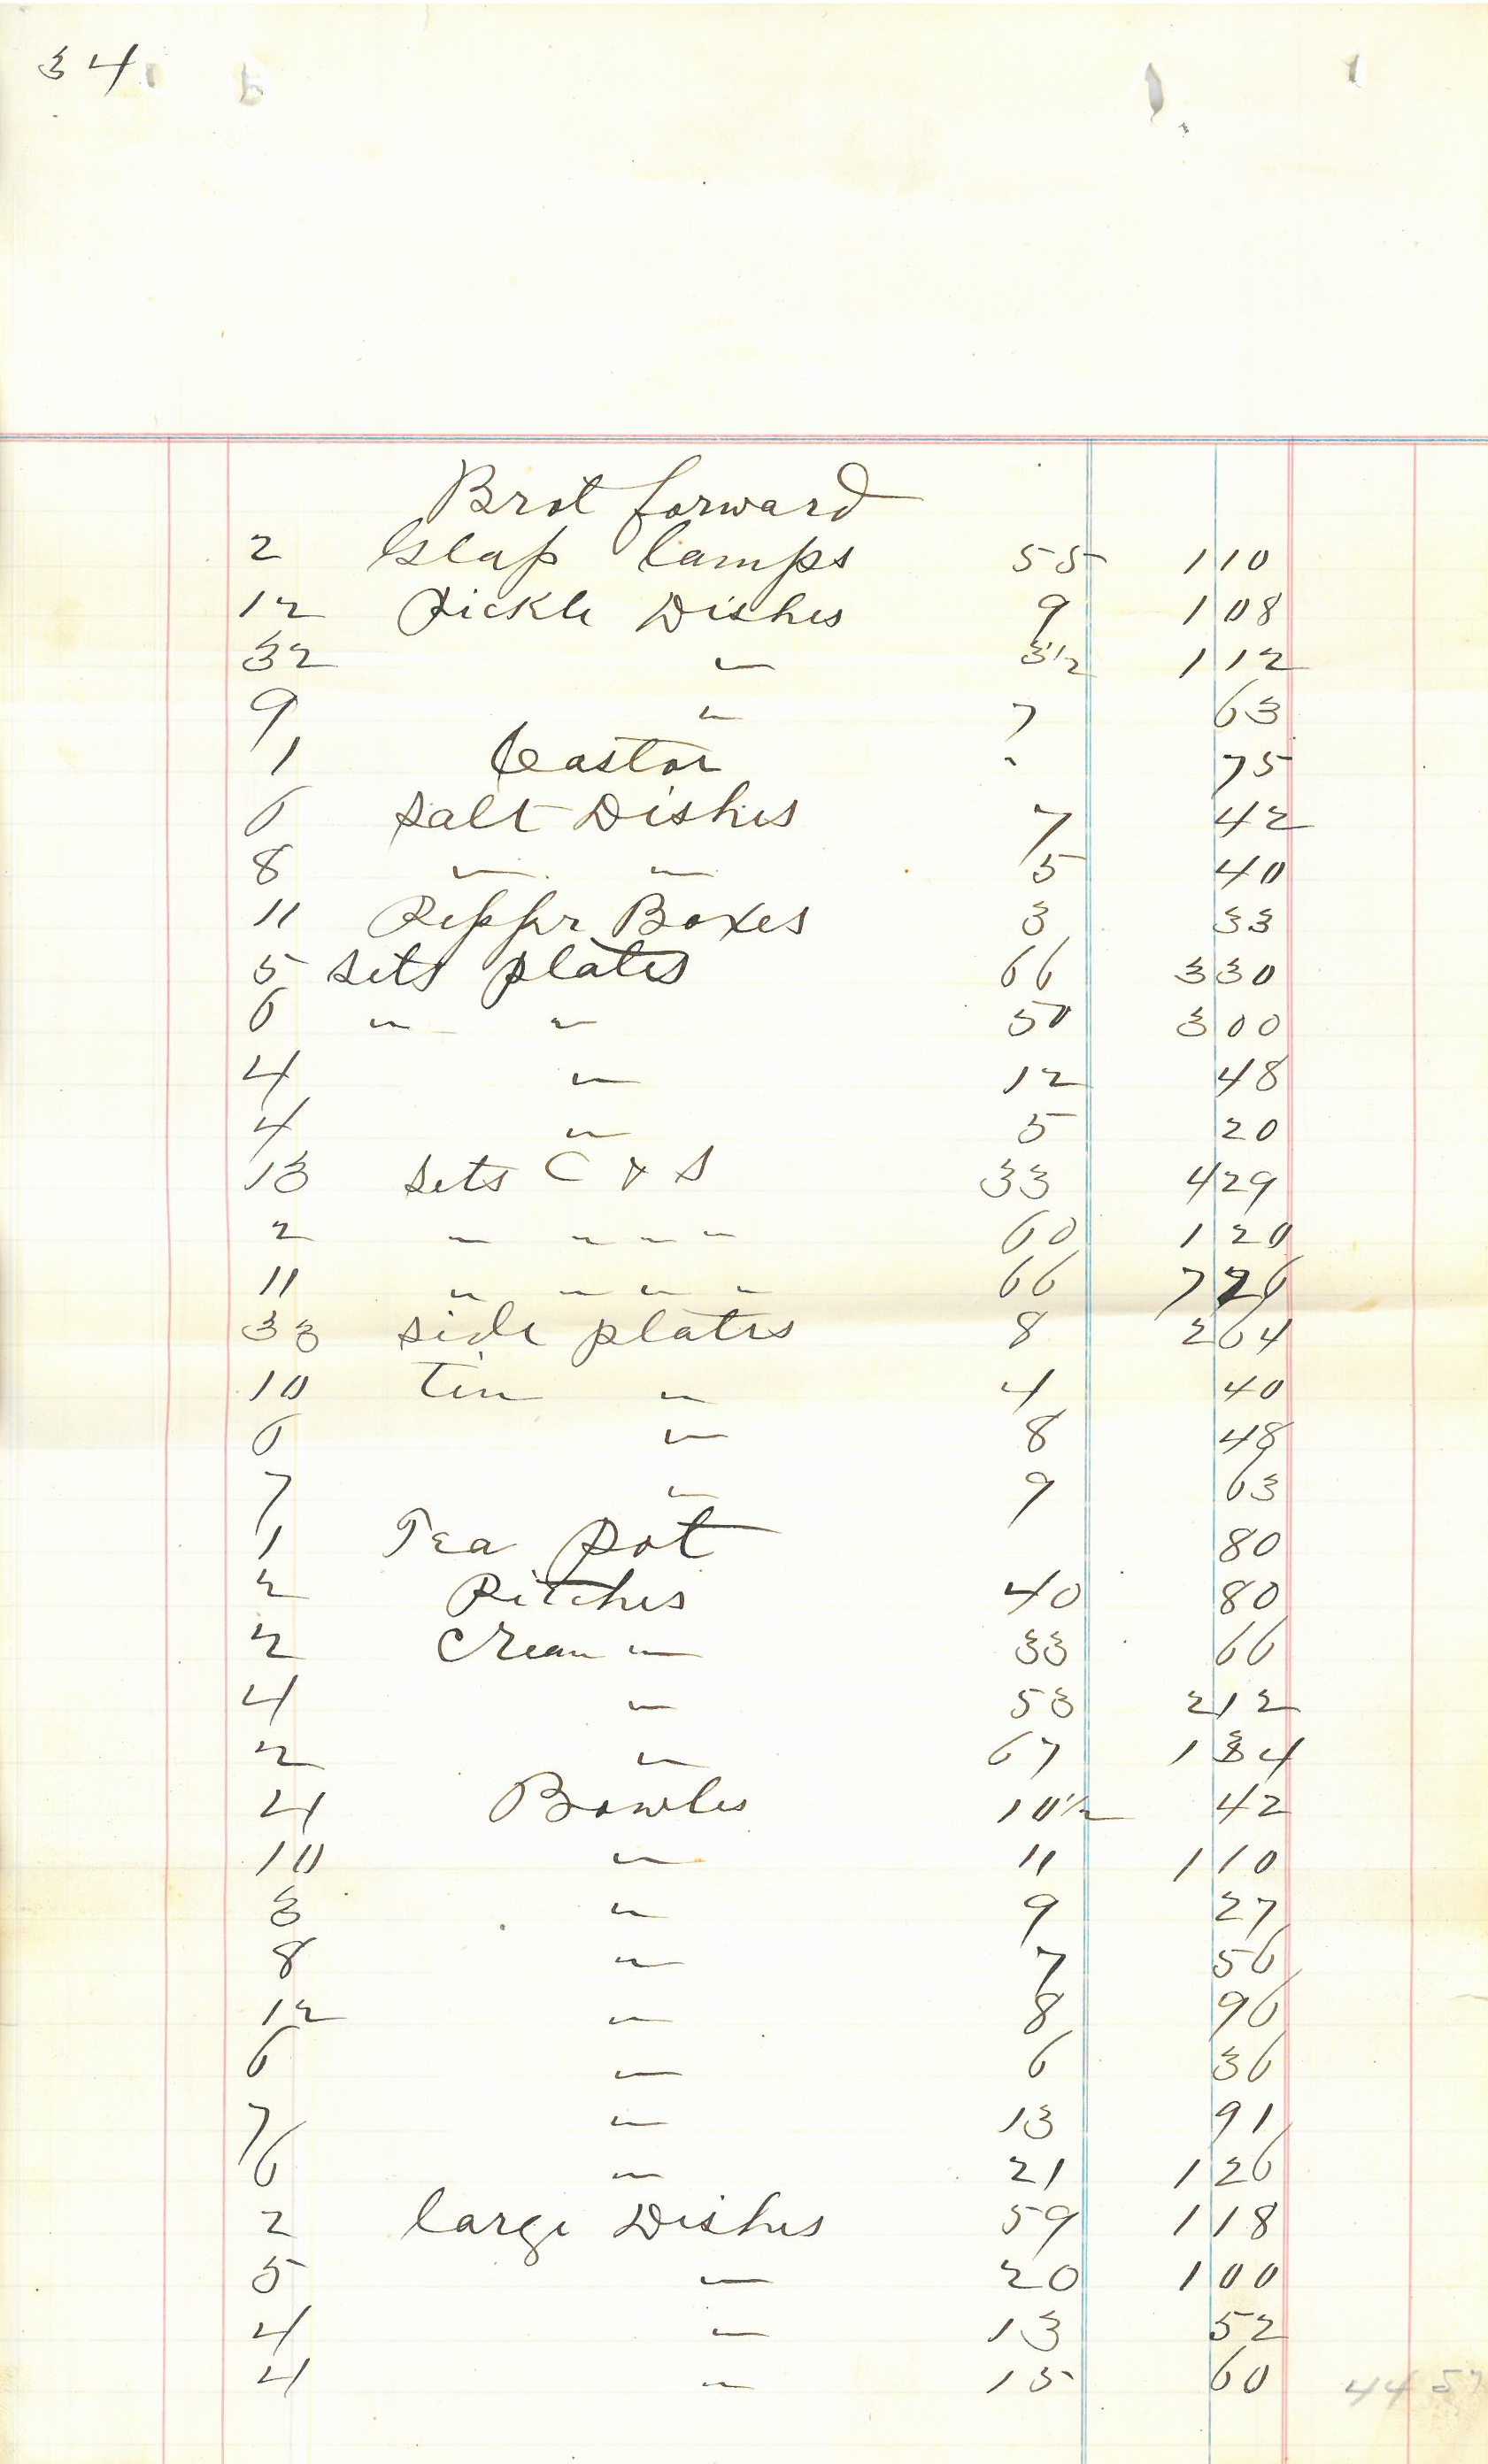 34
Brot forward
2 Glass lamps 55 1 10
12 Pickle Dishes 9 1 08
32 " 3½ 1 12
9 " 7 63
1 Castor " 75
6 Salt Dishes 7 42
8 " " 5 40
11 Peppr Boxes 3 33
5 Sets plates 66 3 30
6 " " 50 3 00
4 " 12 48
4 " 5 20
13 Sets C & S 33 4 29
2 " " " " 60 1 20
11 " " " " 66 7 26
33 side plates 8 2 64
10 Tin " 4 40
6 " 8 48
7 " 9 63
1 Tea Pot 80
2 Pitches 40 80
2 Cream " 33 66
4 " 53 2 12
2 " 67 1 34
4 Bowles 10½ 42
10 " 11 1 10
3 " 9 27
8 " 7 56
12 " 8 96
6 " 6 36
7 " 13 91
6 " 21 1 26
2 large Dishes 59 1 18
5 " 20 1 00
4 " 13 52
4 " 15 60 44 57